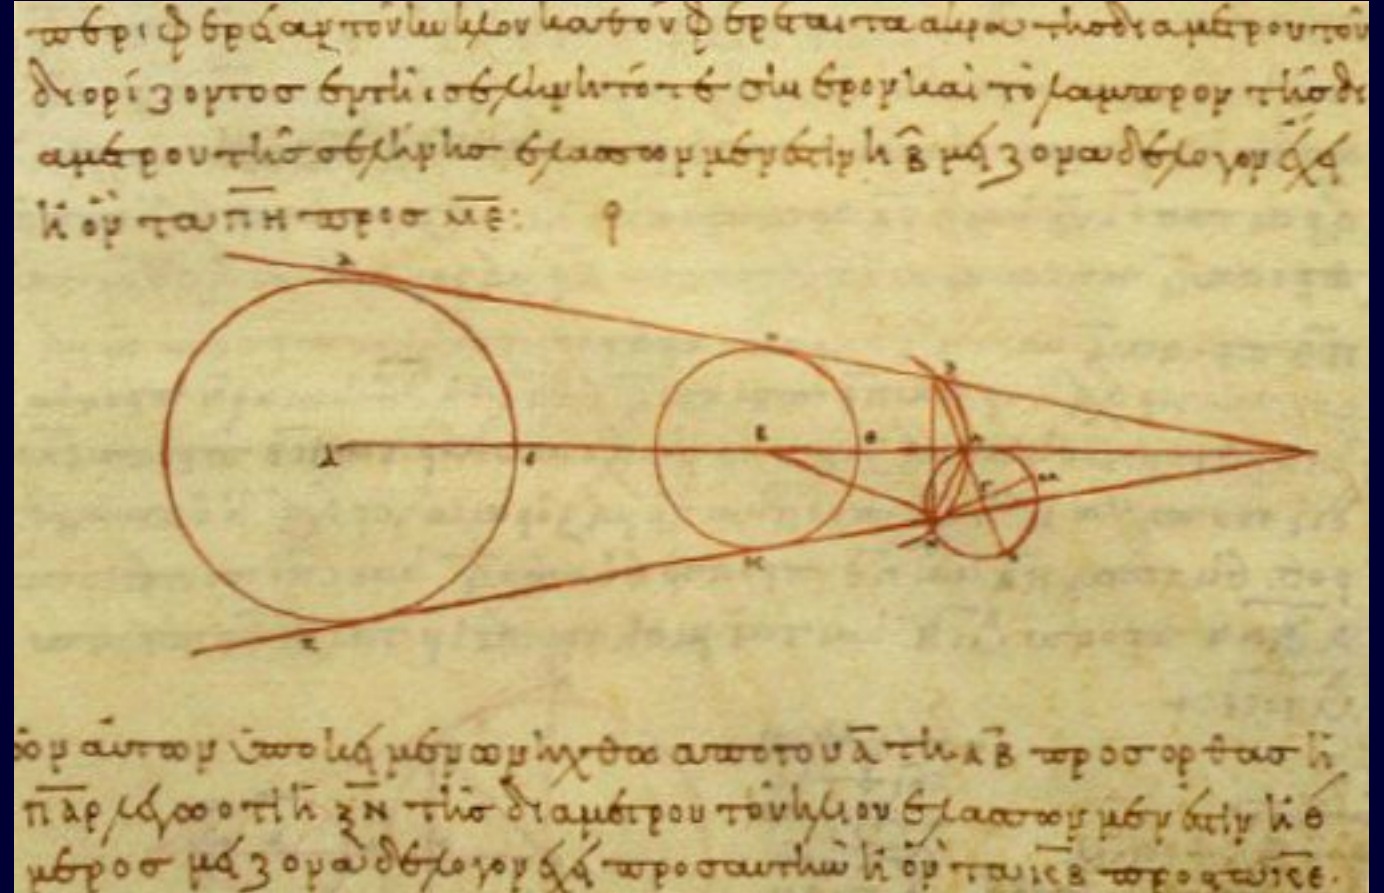 περιφέρειαν τοῦ κύκλου καθ' ὃν φέρεται τὰ ἄκρα τῆς διαμέτρου τοῦ
διορίζοντος ἐν τῆι σελήνηι τό τε σκιερὸν καὶ τὸ λαμπρὸν τῆς δι
αμέτρου τῆς σελήνης ἐλάσσων μέν ἐστιν ἢ β̅ μείζονα δὲ λόγον ἔχει
ἢ ὃν τὰ π̅η̅ πρὸς μ̅ε̅:
αὐτῶν ὑποκειμένων ἤχθω ἀπὸ τοῦ λ̅ τῆι λ̅β̅ πρὸς ὀρθὰς ἡ
π̅λ̅ρ̅ λέγω ὅτι ἡ ξ̅ν̅ τῆς διαμέτρου τοῦ ἡλίου ἐλάσσων μέν ἐστιν ἢ
μέρος μείζονα δὲ λόγον ἔχει πρὸς αὐτὴν ἢ ὃν τὰ πρὸς